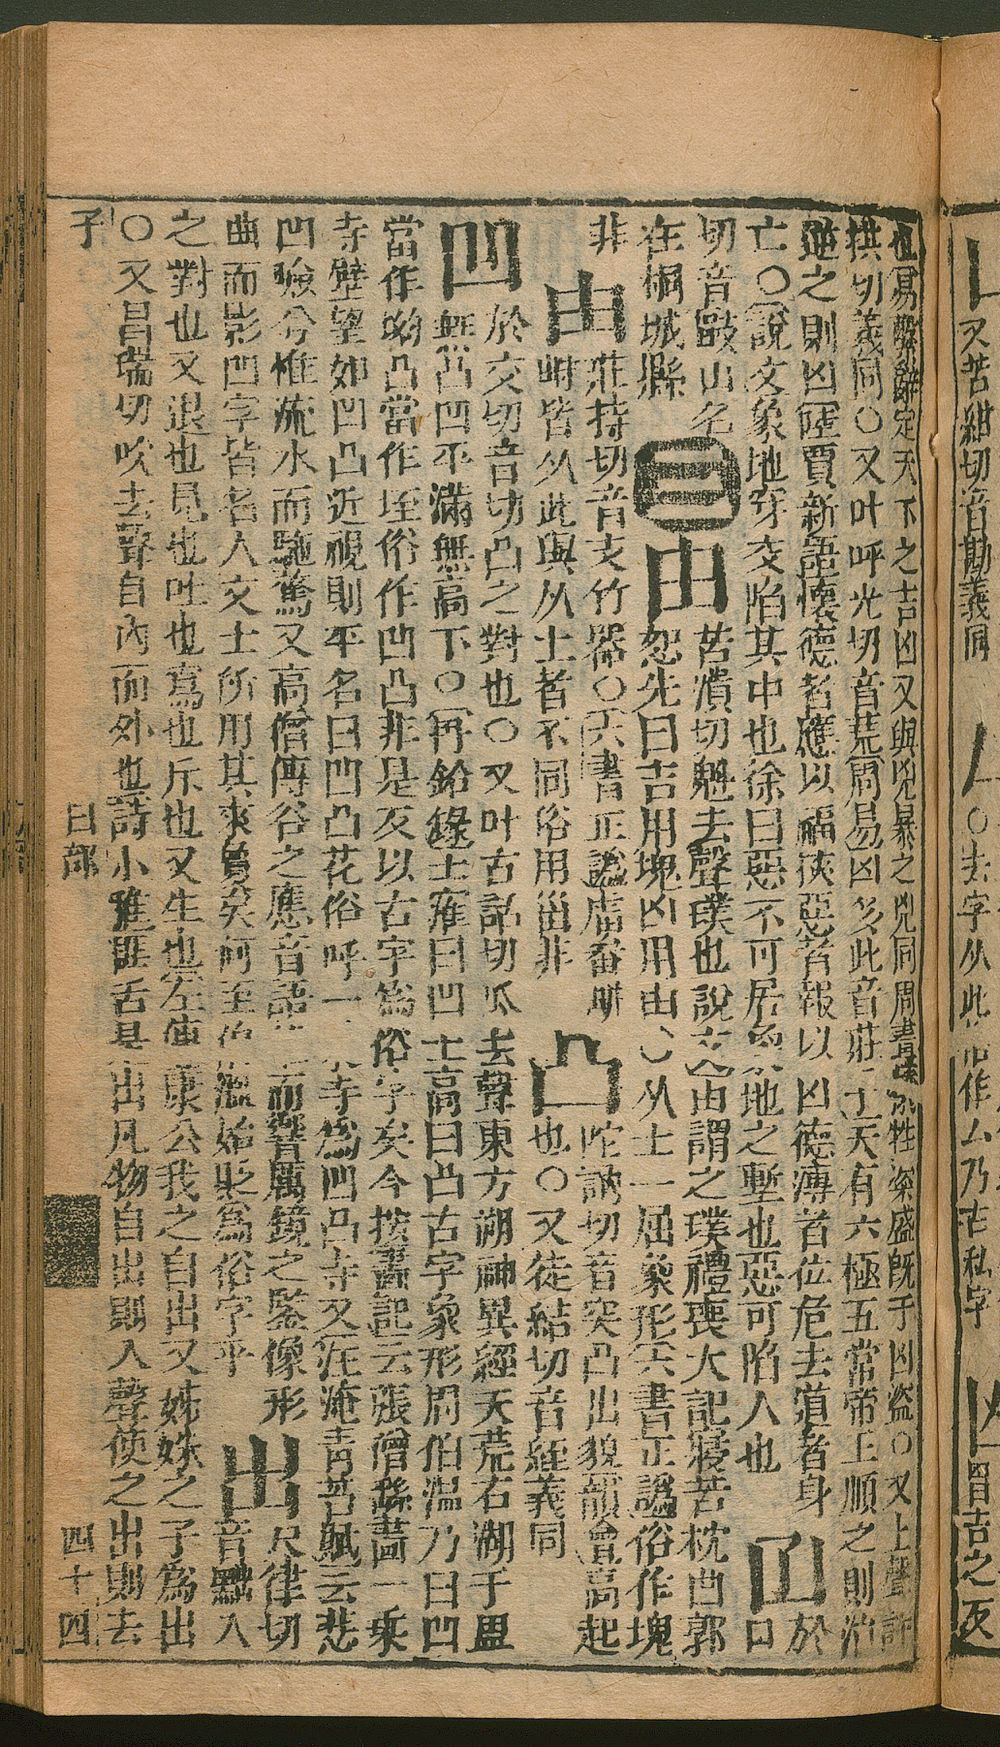 凵又苦紺切音勘義同 𠃋○厷字从此俗作厶乃古私字 凶吉之反
也易繫辭定天下之吉凶又與兇暴之兇同周書犧牲粢盛既于凶盜○又上聲許
拱切義同○又叶呼光切音荒周易凶多此音莊子天有六極五常帝王順之則治
逆之則凶陸賈新語懷德者應以福挾惡者報以凶德薄者位危去道者身
亡○說文象地穿交陷其中也徐曰惡不可居象地之塹也惡可陷人也 口於
切音山名 三 凷苦潰切魁去聲璞也說文凷謂之璞禮喪大記寢苫枕凷郭
在桐城縣 恕先曰吉用塊凶用凷○从土一屈象形六書正譌俗作塊
非 甾莊持切音支竹器○六書正譌盧畚
皆从此與从土者不同俗用甾非 凸陀訥切音突凸出貌韻會高起
也○又徒結切音絰義同
凹於交切音坳凸之對也○又叶古話切瓜去聲東方朔神異經天荒石湖千里
無凸凹平滿無高下○丹鉛錄土窪曰凹土高曰凸古字象形周伯溫乃曰凹
當作坳凸當作垤俗作凹凸非是反以古字爲俗字矣今按畫記云張僧繇畫一乘
寺壁望如凹凸近視則平名曰凹凸花俗呼一乘寺爲凹凸寺又江淹青苔賦云悲
凹嶮兮惟流水而馳騖又高僧傳谷之應音語而響厲鏡之鑒像形
曲而影凹字皆名人文士所用其來舊矣何至伯溫始貶爲俗字乎 出尺律切
音黜入
之對也又退也見也吐也寫也斥也又生也左傳康公我之自出又姊妹之子爲出
○又昌瑞切吹去聲自內而外也詩小雅匪舌是出凡物自出則入聲使之出則去
子 凵部 四十四